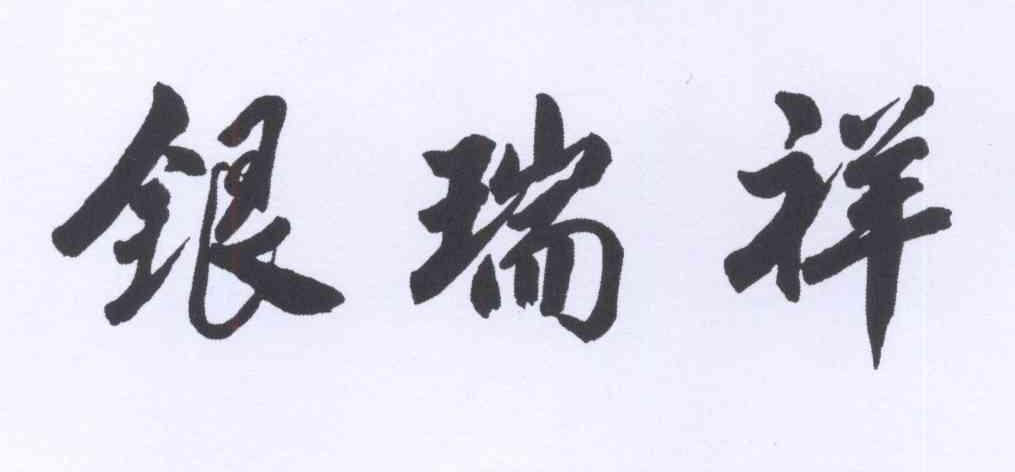 银瑞祥